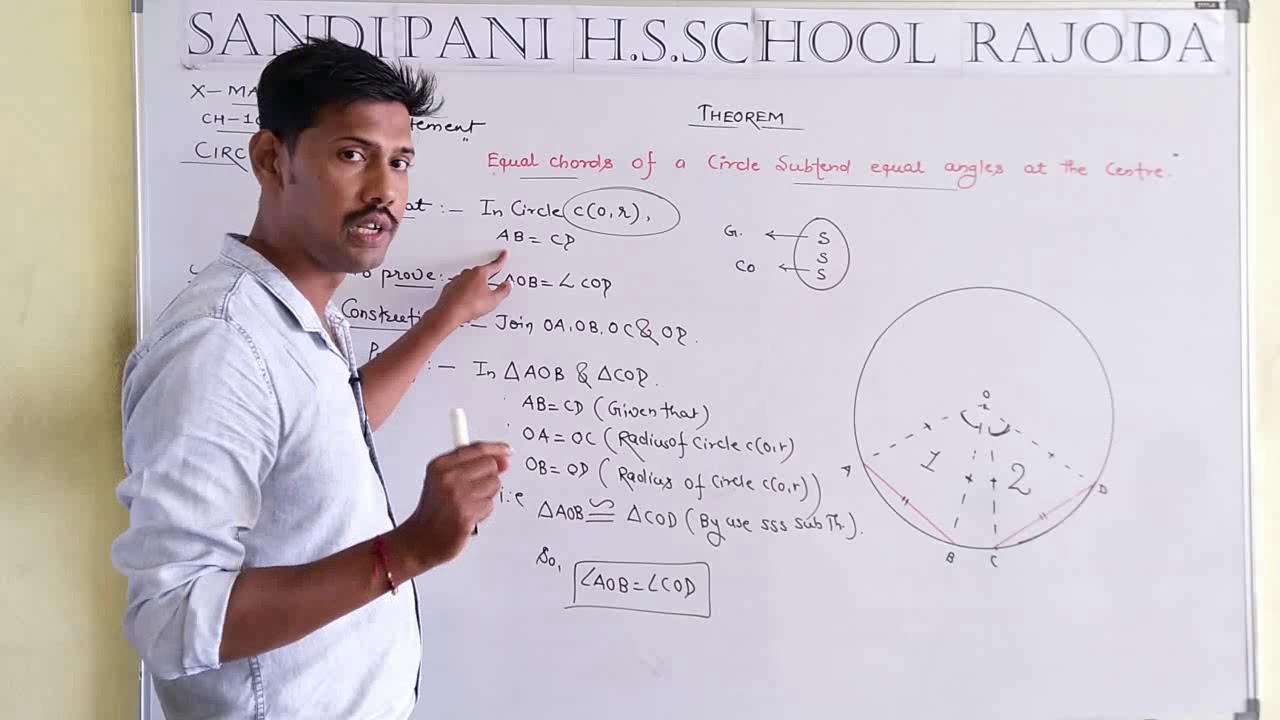 SANDIPANI H.S.SCHOOL RAJODA
X- MA
CH-10
CIRC
THEOREM
"Equal chords of a Circle Subtend equal angles at the Centre."
:- In Circle c(O,r),
AB = CD
To prove:- ∠AOB = ∠COD
:- Join OA, OB, OC & OD.
:- In △AOB & △COD.
AB = CD (Given that)
OA = OC (Radius of Circle c(O,r)
OB = OD (Radius of Circle c(O,r))
i.e
△AOB ≅ △COD (By use SSS Sub Th.).
So,
∠AOB = ∠COD
G. ← S
S
CO ← S
O
1
2
A
D
B
C